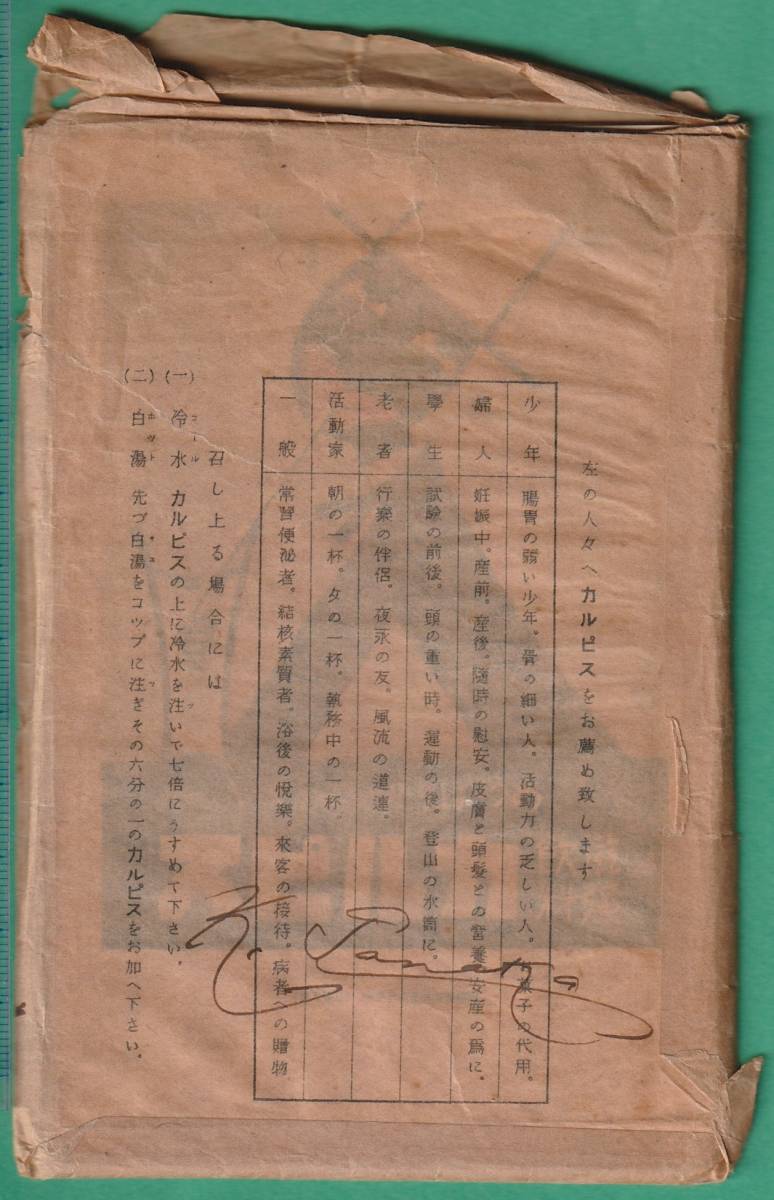 左の人々へカルピスをお薦め致します
少年 腸胃の弱い少年。骨の細い人。活動力の乏しい人。お菓子の代用。
婦人 姙娠中。産前。産後。隨時の慰安。皮膚と頭髮との営養。安産の爲に。
學生 試驗の前後。頭の重い時。運動の後。登山の水筒に。
老者 行楽の伴侶。夜永の友。風流の道連。
活動家 朝の一杯。夕の一杯。執務中の一杯。
一般 常習便泌者。結核素質者。浴後の悅樂。來客の接待。病者への贈物
召し上る場合には
(一) 冷水 カルピスの上に冷水を注いで七倍にうすめて下さい。
(二) 白湯 先づ白湯をコップに注ぎその六分の一のカルピスをお加へ下さい。
K. Tanaka